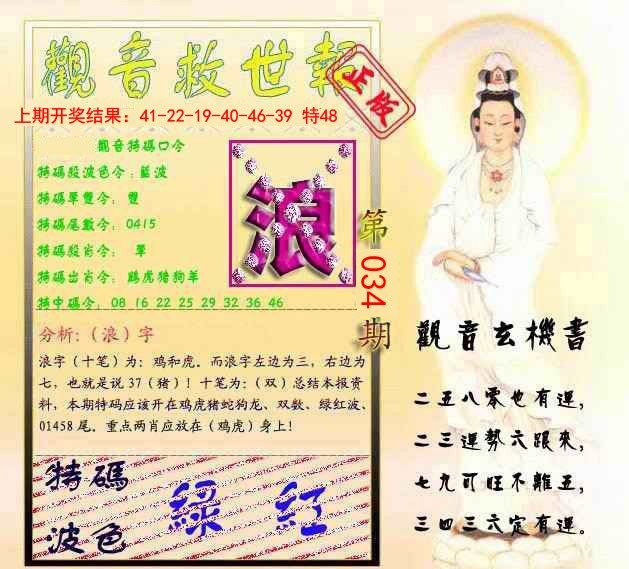 觀音救世報
正版
上期开奖结果：41-22-19-40-46-39 特48
觀音特碼口令
特碼段波色令：藍波
特碼單雙令： 雙
特碼尾數令： 0415
特碼段肖令： 單
特碼出肖令： 鷄虎猪狗羊
特中碼令： 08 16 22 25 29 32 36 46
浪
第
034
期
分析:（浪）字
浪字（十笔）为: 鸡和虎。而浪字左边为三，右边为
七，也就是说 37（猪）！十笔为:（双）总结本报资
料，本期特码应该开在鸡虎猪蛇狗龙、双数、绿红波、
01458 尾。重点两肖应放在（鸡虎）身上！
特碼
波色
綠 紅
觀音玄機書
二五八零也有運，
二三運勢六跟來，
七九可旺不離五，
三四三六定有運。